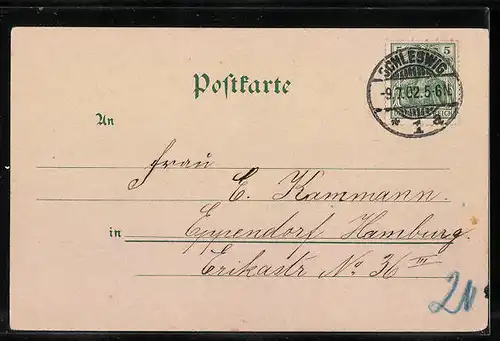 5 5
SCHLESWIG
Postkarte
-9.7.02.5-6N.
An
* 1 a
Frau
E. Kammann.
in Eppendorf Hamburg.
Erikastr No. 36 III